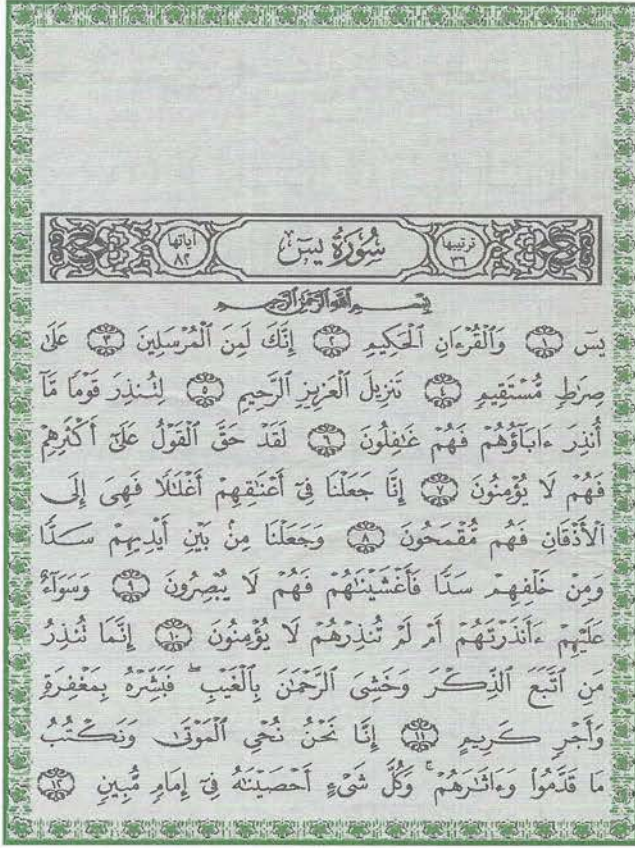 ترتيبها ٣٦ سُورَةُ يسٓ آياتها ٨٣
بِسْمِ اللَّهِ الرَّحْمَٰنِ الرَّحِيمِ
يسٓ ١ وَالْقُرْءَانِ الْحَكِيمِ ٢ إِنَّكَ لَمِنَ الْمُرْسَلِينَ ٣ عَلَىٰ
صِرَٰطٍ مُّسْتَقِيمٍ ٤ تَنزِيلَ الْعَزِيزِ الرَّحِيمِ ٥ لِتُنذِرَ قَوْمًا مَّآ
أُنذِرَ ءَابَآؤُهُمْ فَهُمْ غَٰفِلُونَ ٦ لَقَدْ حَقَّ الْقَوْلُ عَلَىٰٓ أَكْثَرِهِمْ
فَهُمْ لَا يُؤْمِنُونَ ٧ إِنَّا جَعَلْنَا فِىٓ أَعْنَٰقِهِمْ أَغْلَٰلًا فَهِىَ إِلَى
الْأَذْقَانِ فَهُم مُّقْمَحُونَ ٨ وَجَعَلْنَا مِنۢ بَيْنِ أَيْدِيهِمْ سَدًّا
وَمِنْ خَلْفِهِمْ سَدًّا فَأَغْشَيْنَٰهُمْ فَهُمْ لَا يُبْصِرُونَ ٩ وَسَوَآءٌ
عَلَيْهِمْ ءَأَنذَرْتَهُمْ أَمْ لَمْ تُنذِرْهُمْ لَا يُؤْمِنُونَ ١٠ إِنَّمَا تُنذِرُ
مَنِ اتَّبَعَ الذِّكْرَ وَخَشِىَ الرَّحْمَٰنَ بِالْغَيْبِ ۖ فَبَشِّرْهُ بِمَغْفِرَةٍ
وَأَجْرٍ كَرِيمٍ ١١ إِنَّا نَحْنُ نُحْىِ الْمَوْتَىٰ وَنَكْتُبُ
مَا قَدَّمُوا۟ وَءَاثَٰرَهُمْ ۚ وَكُلَّ شَىْءٍ أَحْصَيْنَٰهُ فِىٓ إِمَامٍ مُّبِينٍ ١٢